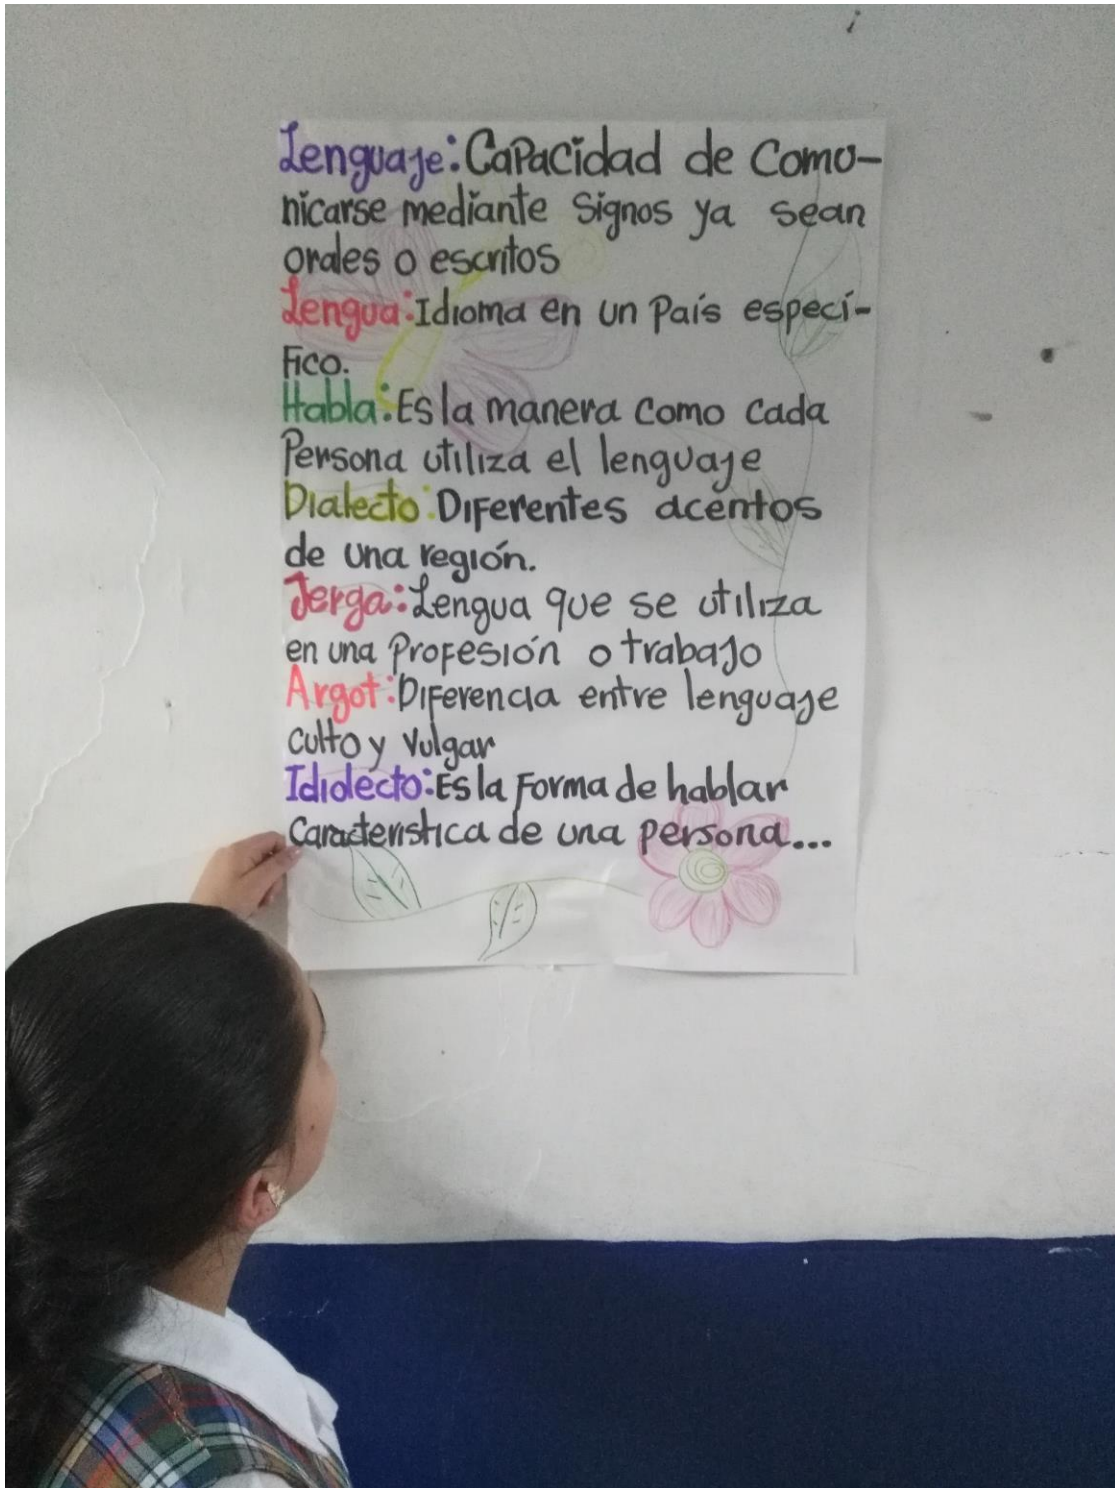 Lenguaje: Capacidad de comu-
nicarse mediante signos ya sean
orales o escritos
Lengua: Idioma en un País especí-
fico.
Habla: Es la manera como cada
Persona utiliza el lenguaje
Dialecto: Diferentes acentos
de una región.
Jerga: Lengua que se utiliza
en una Profesión o trabajo
Argot: Diferencia entre lenguaje
culto y vulgar
Idiolecto: Es la forma de hablar
Característica de una persona...